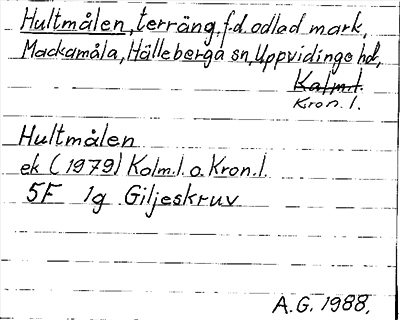 Hultmålen, terräng, f.d. odlad mark,
Mackamåla, Hälleberga sn, Uppvidinge hd,
Kalm.l.
Kron. l.
Hultmålen
ek (1979) Kalm.l. o. Kron.l.
5F 1g Giljeskruv
A.G. 1988.